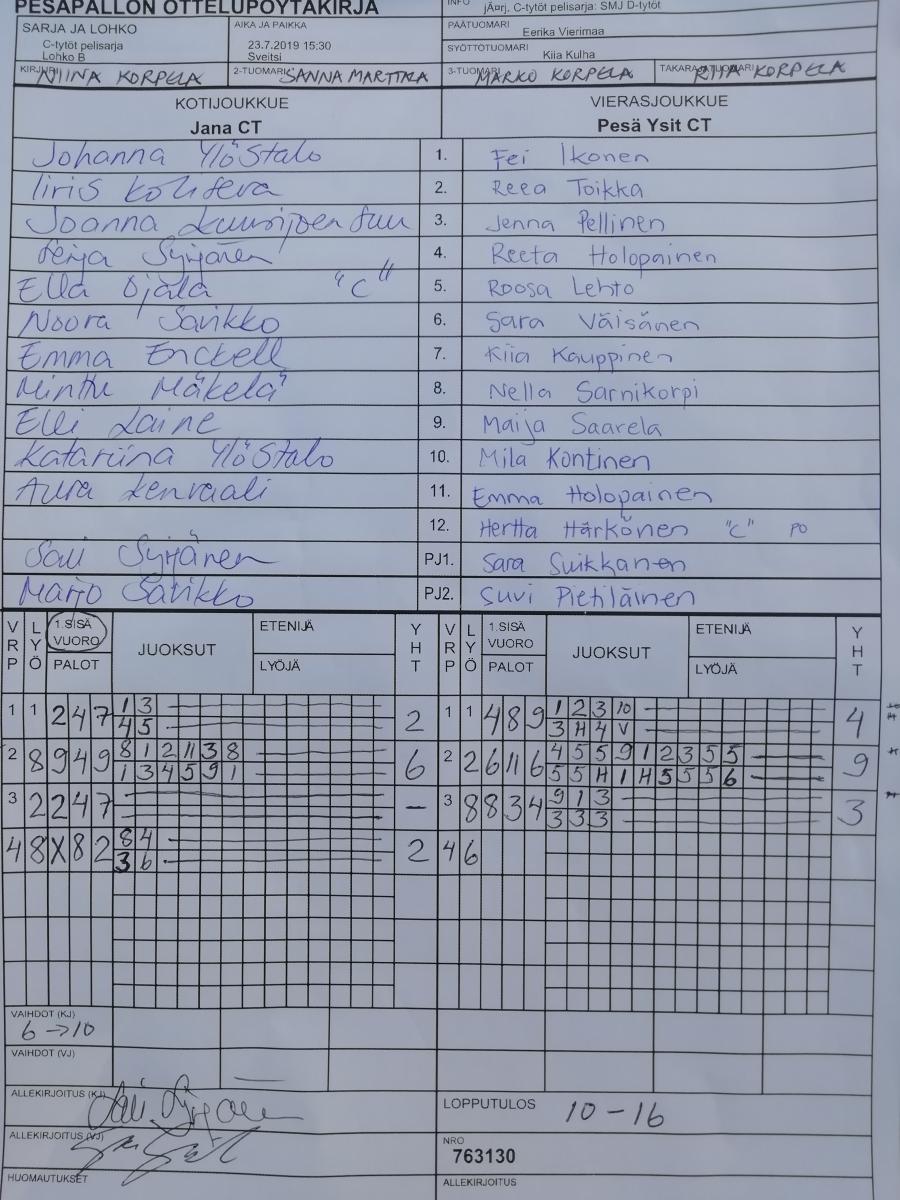 PESÄPALLON OTTELUPÖYTÄKIRJA
INFO jÃ¤rj. C-tytöt pelisarja: SMJ D-tytöt
SARJA JA LOHKO
C-tytöt pelisarja
Lohko B
AIKA JA PAIKKA
23.7.2019 15:30
Sveitsi
PÄÄTUOMARI Eerika Vierimaa
SYÖTTÖTUOMARI Kiia Kulha
KIRJURI NIINA KORPELA
2-TUOMARI SANNA MARTTALA
3-TUOMARI MARKO KORPELA
TAKARAJATUOMARI RIIA KORPELA
KOTIJOUKKUE VIERASJOUKKUE
Jana CT Pesä Ysit CT
Johanna Ylöstalo 1. Fei Ikonen
Iiris 2. Reea Toikka
Joanna 3. Jenna Pellinen
Syrjänen 4. Reeta Holopainen
Ella Ojala "C" 5. Roosa Lehto
Noora Savikko 6. Sara Väisänen
Emma Enckell 7. Kiia Kauppinen
Minttu Mäkelä 8. Nella Sarnikorpi
Elli Laine 9. Maija Saarela
Katariina Ylöstalo 10. Mila Kontinen
Aura Kenraali 11. Emma Holopainen
12. Hertta Härkönen "C" PO
Sari Syrjänen PJ1. Sara Suikkanen
Marjo Savikko PJ2. Suvi Pietiläinen
VRP LYÖ 1.SISÄ VUORO PALOT JUOKSUT ETENIJÄ LYÖJÄ YHT VRP LYÖ 1.SISÄ VUORO PALOT JUOKSUT ETENIJÄ LYÖJÄ YHT
1 1 2 4 7 1 3 2 1 1 4 8 9 1 2 3 10 4
4 5 3 H 4 V
2 8 9 4 9 8 1 2 11 3 8 6 2 2 6 11 6 4 5 5 9 1 2 3 5 5 9
1 3 4 5 9 1 5 5 H 1 H 5 5 5 6
3 2 2 4 7 – 3 8 8 3 4 9 1 3 3
3 3 3
4 8 X 8 2 8 4 2 4 6
3 6
VAIHDOT (KJ)
6 → 10
VAIHDOT (VJ)
ALLEKIRJOITUS (KJ) Sari Syrjänen
LOPPUTULOS 10 – 16
ALLEKIRJOITUS (VJ)
NRO
763130
HUOMAUTUKSET
ALLEKIRJOITUS